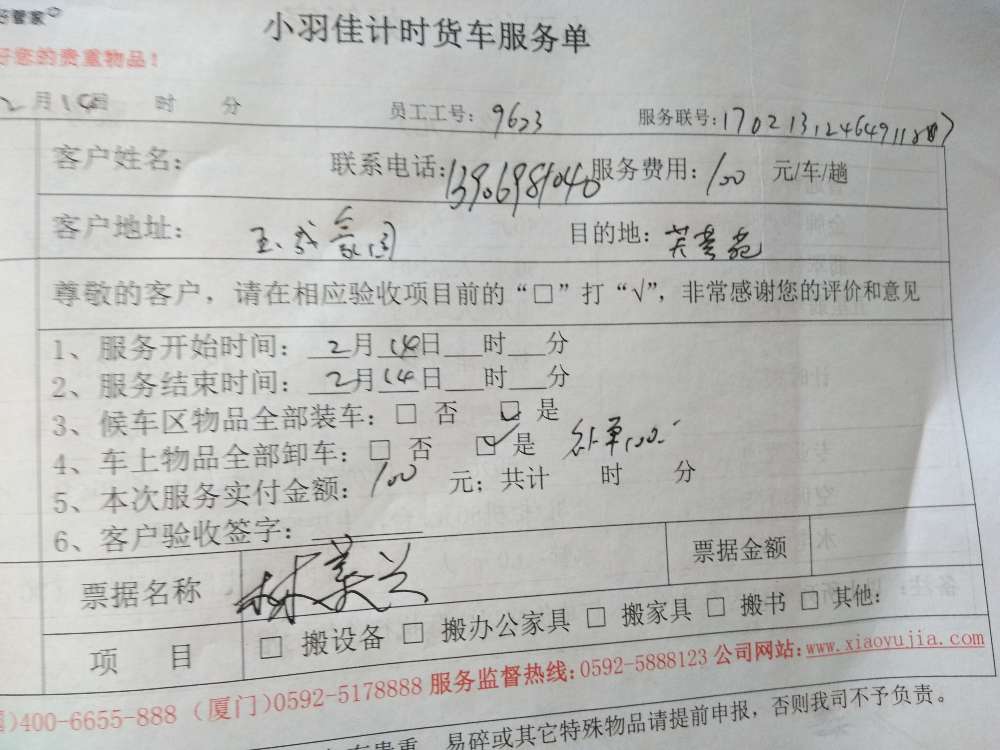 好管家
小羽佳计时货车服务单
好您的贵重物品！
2月14日 时 分 员工工号：9623 服务联号：
客户姓名： 联系电话：13906981040 服务费用：100 元/车/趟
客户地址： 目的地：芙蓉苑
尊敬的客户，请在相应验收项目前的“□”打“√”，非常感谢您的评价和意见
1、服务开始时间：2月14日___时___分
2、服务结束时间：2月14日___时___分
3、候车区物品全部装车：□ 否 ☑ 是
4、车上物品全部卸车：□ 否 ☑ 是 补单100.-
5、本次服务实付金额：100 元；共计 时 分
6、客户验收签字：
票据名称 票据金额
项 目 □ 搬设备 □ 搬办公家具 □ 搬家具 □ 搬书 □ 其他：
)400-6655-888（厦门)0592-5178888 服务监督热线:0592-5888123 公司网站:www.xiaoyujia.com
贵重、易碎或其它特殊物品请提前申报，否则我司不予负责。